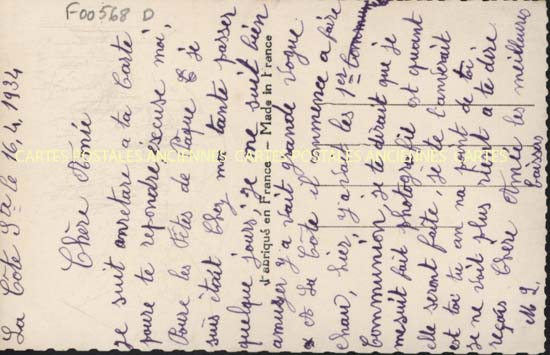 F00568 D
La Côte St. le 16.4.1934
Chère Aimée
je suit anretare ta Carte
poure te repondre, excuse moi,
Poure les Fêtes de Pâque & je
suis était Chez ma tante passer
quelque jours, je me suit bien
amuser y a vait grande vogue
et La Côte il commence a faire
chau, hier, y avait les 1er Commun
Communion, je te dirait que je
me suit fait photografié est quant
elle seront faite, je te l'anvérait
est toi tu an na point de toi,
je ne voit plus rient a te dire
reçois Chère Aimée les meilleurs
baisers
M G.
Fabriqué en France Made in France
CARTES POSTALES ANCIENNES